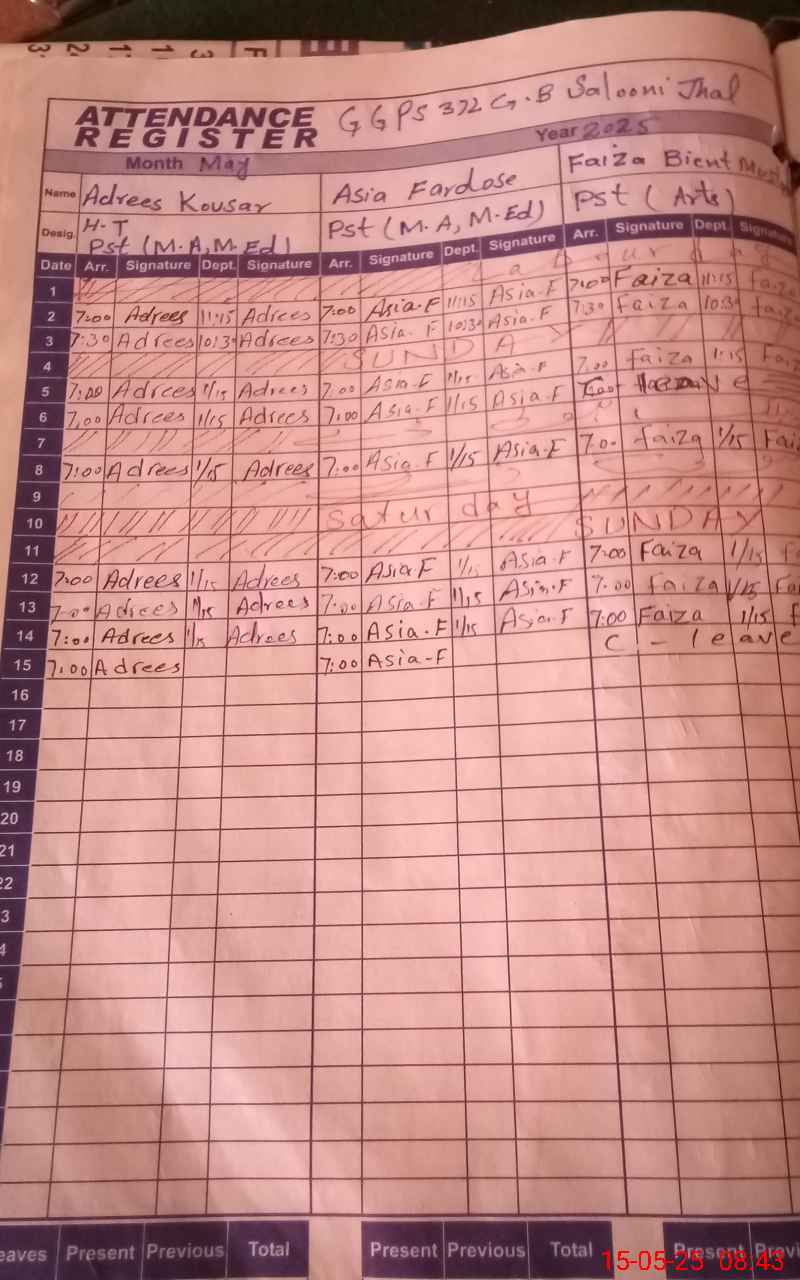 ATTENDANCE REGISTER GGPS 372 G.B Salooni Jhal
Month May Year 2025
Name Adrees Kousar Asia Fardose Faiza Bient
Desig. H-T Pst (M.A, M.Ed) Pst (M.A, M-Ed) Pst (Arts)
Date Arr. Signature Dept. Signature Arr. Signature Dept. Signature Arr. Signature Dept. Signature
1
2 7:00 Adrees 11:15 Adrees 7:00 Asia-F 11:15 Asia-F 7:00 Faiza 11:15 faiza
3 7:30 Adrees 10:30 Adrees 7:30 Asia-F 10:30 Asia-F 7:30 faiza 10:30 faiza
4 SUNDAY
5 7:00 Adrees 1/15 Adrees 7:00 Asia-F 1/15 Asia-F 7.00 faiza 1:15
6 7:00 Adrees 1/15 Adrees 7:00 Asia-F 1/15 Asia-F
7
8 7:00 Adrees 1/15 Adrees 7:00 Asia-F 1/15 Asia-F 7.0. faiza 1/15
9
10 Satur day
11 SUNDAY
12 7:00 Adrees 1/15 Adrees 7:00 Asia F 1/15 Asia-F 7:00 Faiza 1/15
13 7:00 Adrees 1/15 Adrees 7:00 Asia-F 1/15 Asia-F 7:00 faiza 1/15
14 7:00 Adrees 1/15 Adrees 7:00 Asia-F 1/15 Asia-F 7:00 Faiza 1/15
15 7:00 Adrees 7:00 Asia-F C - leave
16
17
18
19
20
21
22
3
4
eaves Present Previous Total Present Previous Total Present
15-05-25 08:43